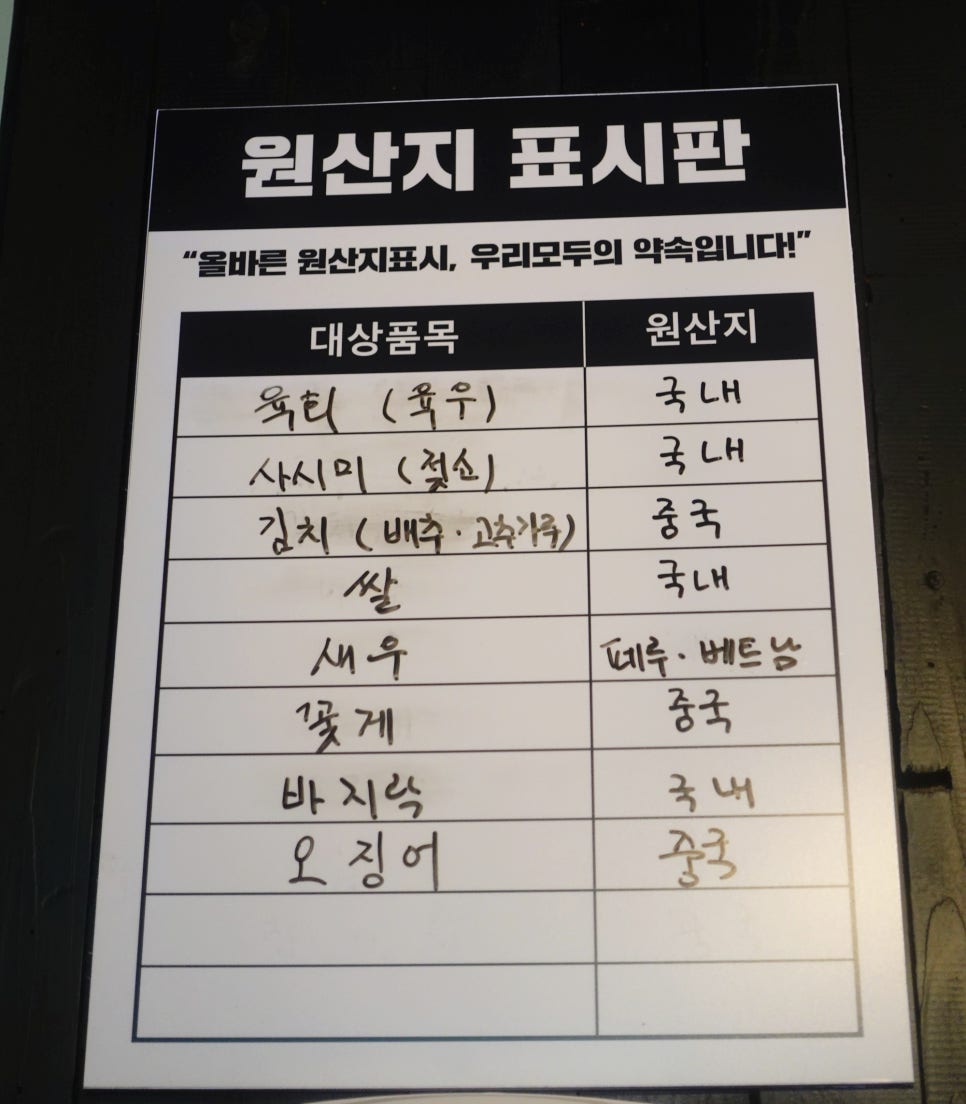 원산지 표시판
“올바른 원산지표시, 우리모두의 약속입니다!”
대상품목 원산지
육회 (육우) 국내
사시미 (젖소) 국내
김치 (배추·고추가루) 중국
쌀 국내
새우 페루·베트남
꽃게 중국
바지락 국내
오징어 중국